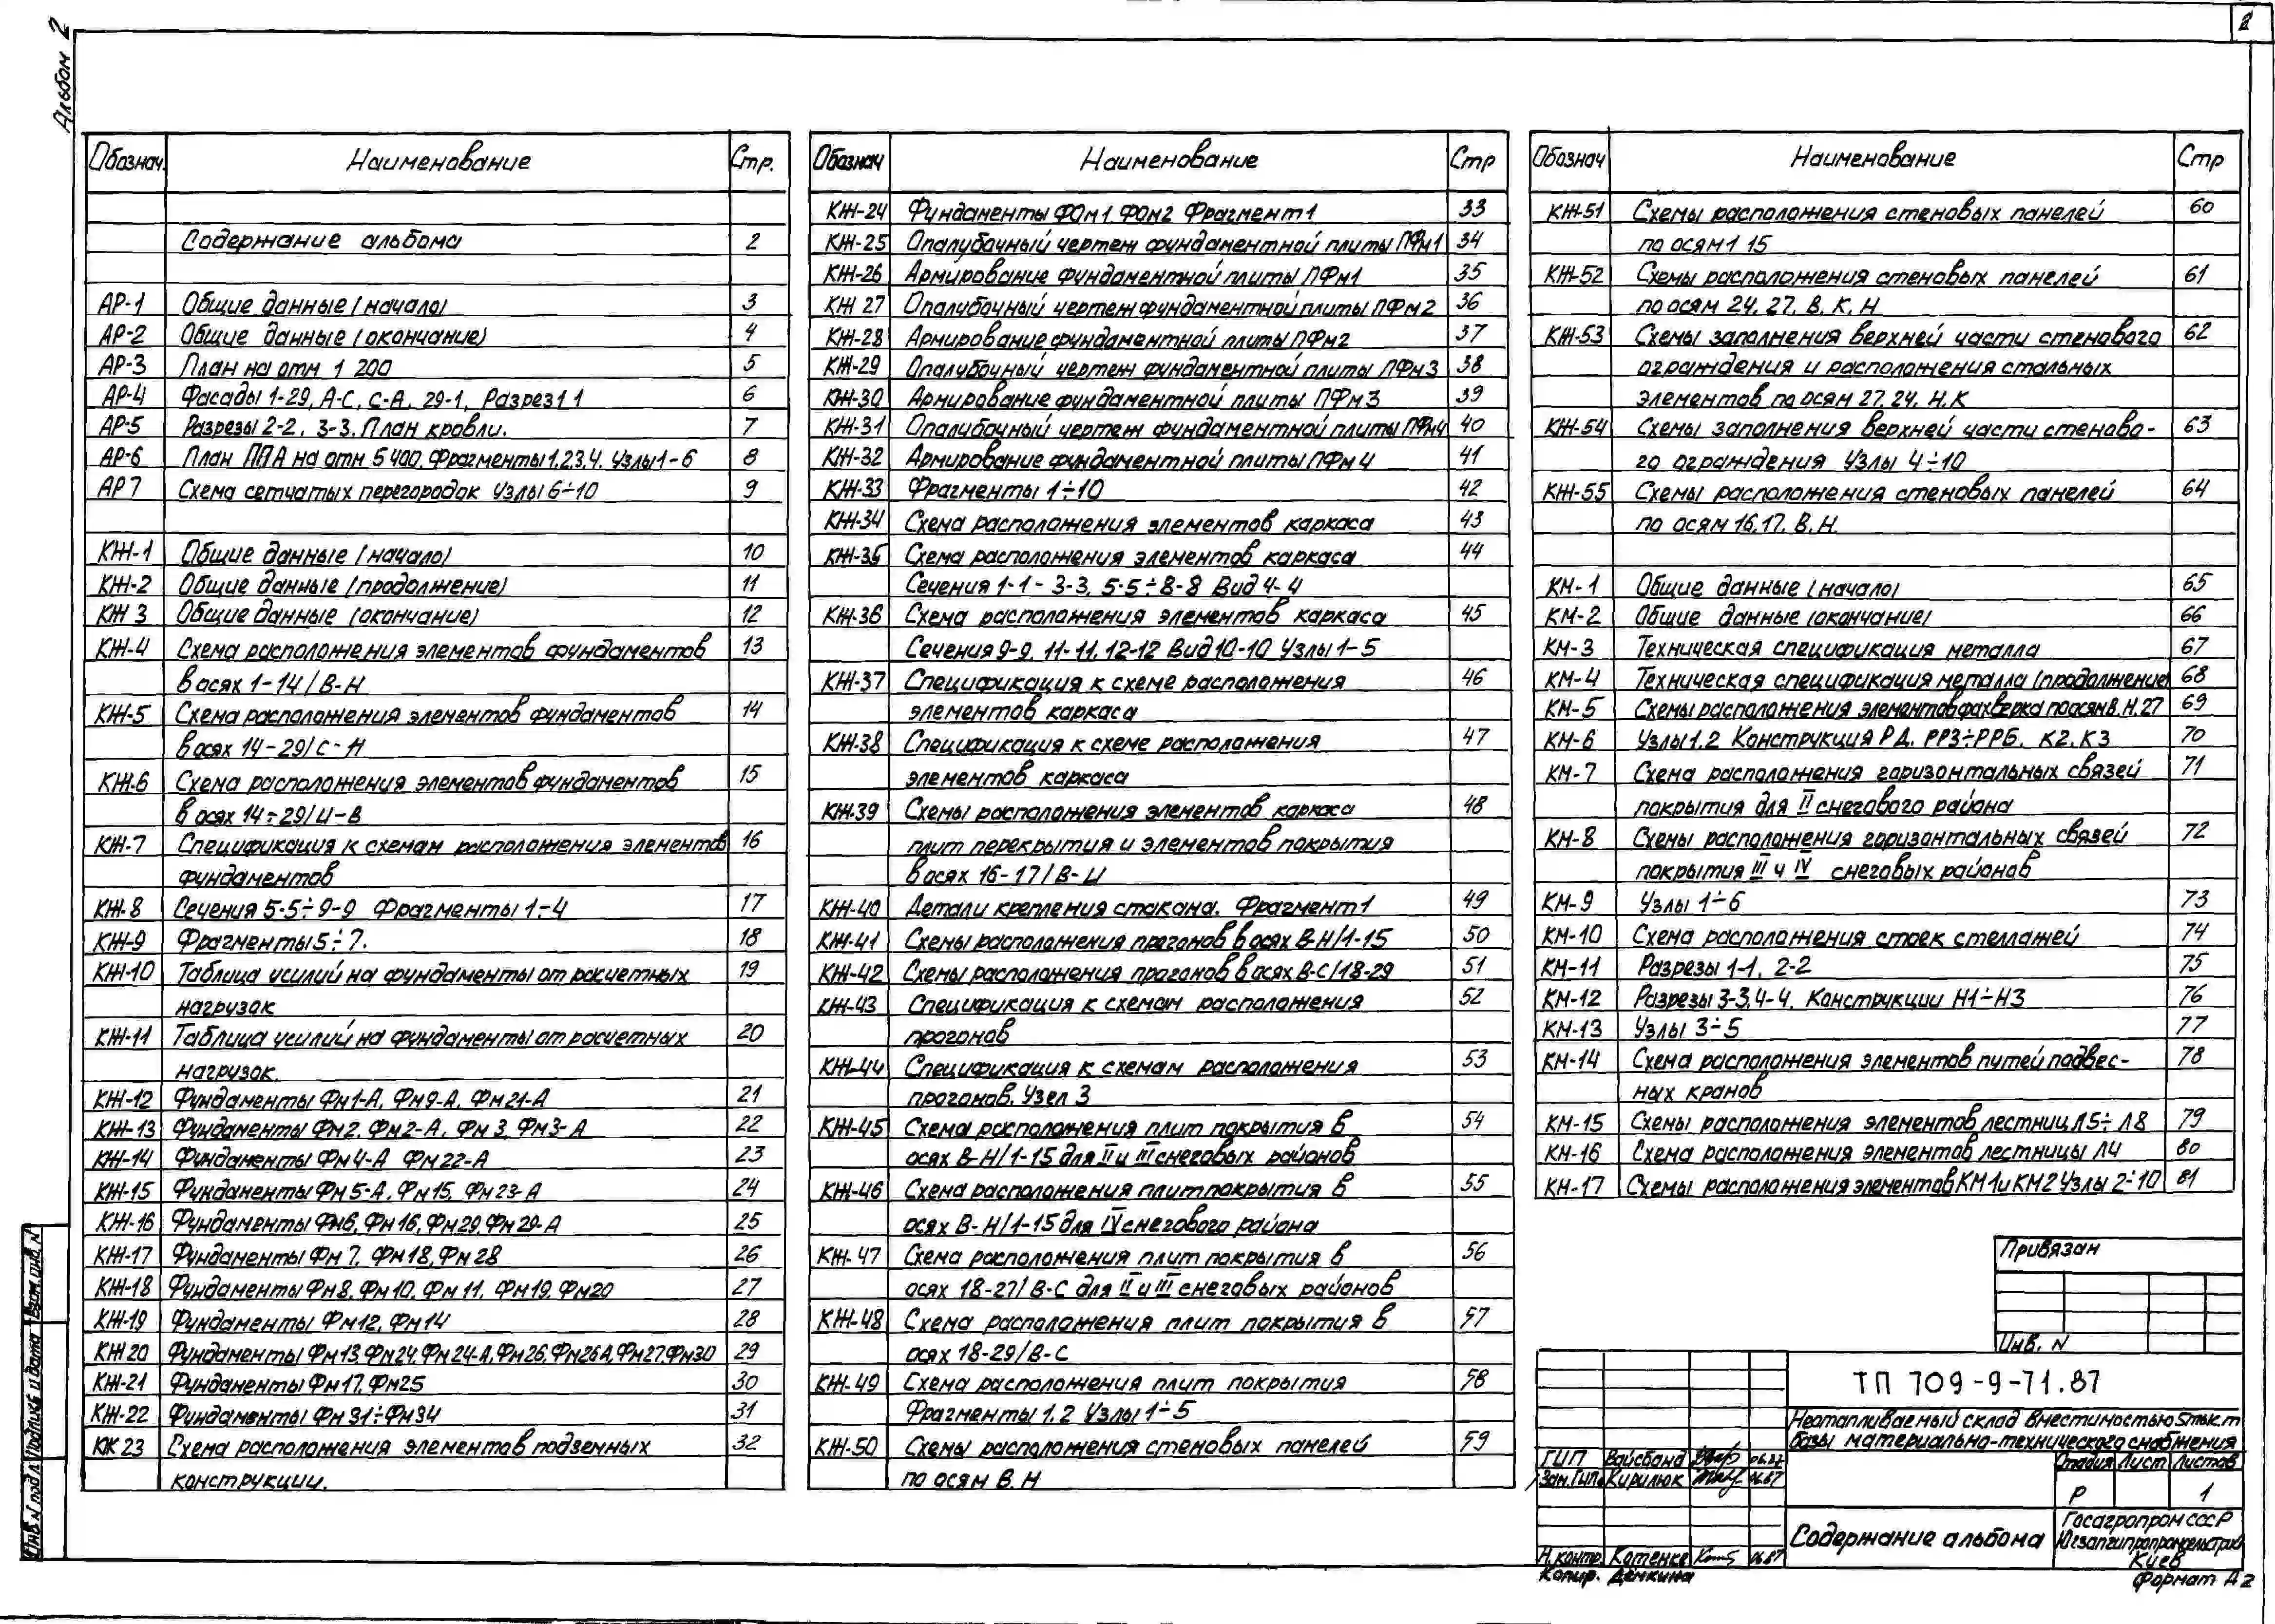 Альбом 2
2
Обознач. Наименование Стр.
Содержание альбома 2
АР-1 Общие данные (начало) 3
АР-2 Общие данные (окончание) 4
АР-3 План на отм 1 200 5
АР-4 Фасады 1-29, А-С, С-А, 29-1, Разрез 1 1 6
АР-5 Разрезы 2-2, 3-3. План кровли. 7
АР-6 План ППА на отм 5 400. Фрагменты 1,2,3,4. Узлы 1-6 8
АР 7 Схема сетчатых перегородок Узлы 6÷10 9
КЖ-1 Общие данные (начало) 10
КЖ-2 Общие данные (продолжение) 11
КЖ 3 Общие данные (окончание) 12
КЖ-4 Схема расположения элементов фундаментов 13
в осях 1-14/В-Н
КЖ-5 Схема расположения элементов фундаментов 14
в осях 14-29/С-Н
КЖ-6 Схема расположения элементов фундаментов 15
в осях 14÷29/И-В
КЖ-7 Спецификация к схемам расположения элементов 16
фундаментов
КЖ-8 Сечения 5-5÷9-9 Фрагменты 1÷4 17
КЖ-9 Фрагменты 5÷7. 18
КЖ-10 Таблица усилий на фундаменты от расчетных 19
нагрузок
КЖ-11 Таблица усилий на фундаменты от расчетных 20
нагрузок.
КЖ-12 Фундаменты Фм1-А, Фм9-А, Фм21-А 21
КЖ-13 Фундаменты Фм2, Фм2-А, Фм 3, Фм3-А 22
КЖ-14 Фундаменты Фм4-А Фм22-А 23
КЖ-15 Фундаменты Фм 5-А, Фм 15, Фм 23-А 24
КЖ-16 Фундаменты Фм6, Фм 16, Фм 29, Фм 29-А 25
КЖ-17 Фундаменты Фм 7, Фм 18, Фм 28 26
КЖ-18 Фундаменты Фм8, Фм10, Фм 11, Фм19, Фм20 27
КЖ-19 Фундаменты Фм12, Фм14 28
КЖ 20 Фундаменты Фм13, Фм24, Фм 24-А, Фм26, Фм26А, Фм27, Фм30 29
КЖ-21 Фундаменты Фм17, Фм25 30
КЖ-22 Фундаменты Фм 31÷Фм34 31
КЖ 23 Схема расположения элементов подземных 32
конструкции.
Обознач Наименование Стр
КЖ-24 Фундаменты ФОм1, ФОм2 Фрагмент 1 33
КЖ-25 Опалубочный чертеж фундаментной плиты ПФм1 34
КЖ-26 Армирование фундаментной плиты ПФм1 35
КЖ 27 Опалубочный чертеж фундаментной плиты ПФм2 36
КЖ-28 Армирование фундаментной плиты ПФм2 37
КЖ-29 Опалубочный чертеж фундаментной плиты ПФм3 38
КЖ-30 Армирование фундаментной плиты ПФм3 39
КЖ-31 Опалубочный чертеж фундаментной плиты ПФм4 40
КЖ-32 Армирование фундаментной плиты ПФм 4 41
КЖ-33 Фрагменты 1÷10 42
КЖ-34 Схема расположения элементов каркаса 43
КЖ-35 Схема расположения элементов каркаса 44
Сечения 1-1 - 3-3, 5-5÷8-8 Вид 4-4
КЖ-36 Схема расположения элементов каркаса 45
Сечения 9-9, 11-11, 12-12 Вид 10-10 Узлы 1-5
КЖ-37 Спецификация к схеме расположения 46
элементов каркаса
КЖ-38 Спецификация к схеме расположения 47
элементов каркаса
КЖ-39 Схемы расположения элементов каркаса 48
плит перекрытия и элементов покрытия
в осях 16-17/В-И
КЖ-40 Детали крепления стакана. Фрагмент 1 49
КЖ-41 Схемы расположения прогонов в осях В-Н/1-15 50
КЖ-42 Схемы расположения прогонов в осях В-С/18-29 51
КЖ-43 Спецификация к схемам расположения 52
прогонов
КЖ-44 Спецификация к схемам расположения 53
прогонов. Узел 3
КЖ-45 Схема расположения плит покрытия в 54
осях В-Н/1-15 для II и III снеговых районов
КЖ-46 Схема расположения плит покрытия в 55
осях В-Н/1-15 для IV снегового района
КЖ-47 Схема расположения плит покрытия в 56
осях 18-27/В-С для II и III снеговых районов
КЖ-48 Схема расположения плит покрытия в 57
осях 18-29/В-С
КЖ-49 Схема расположения плит покрытия 58
Фрагменты 1,2 Узлы 1÷5
КЖ-50 Схемы расположения стеновых панелей 59
по осям В, Н
Обознач Наименование Стр
КЖ-51 Схемы расположения стеновых панелей 60
по осям 1 15
КЖ-52 Схемы расположения стеновых панелей 61
по осям 24, 27, В, К, Н
КЖ-53 Схемы заполнения верхней части стенового 62
ограждения и расположения стальных
элементов по осям 27, 24, Н, К
КЖ-54 Схемы заполнения верхней части стеново- 63
го ограждения Узлы 4÷10
КЖ-55 Схемы расположения стеновых панелей 64
по осям 16, 17, В, Н
КМ-1 Общие данные (начало) 65
КМ-2 Общие данные (окончание) 66
КМ-3 Техническая спецификация металла 67
КМ-4 Техническая спецификация металла (продолжение) 68
КМ-5 Схемы расположения элементов фахверка по осям В, Н, 27 69
КМ-6 Узлы 1,2 Конструкция РД, РР3÷РР6, К2, К3 70
КМ-7 Схема расположения горизонтальных связей 71
покрытия для II снегового района
КМ-8 Схемы расположения горизонтальных связей 72
покрытия III и IV снеговых районов
КМ-9 Узлы 1÷6 73
КМ-10 Схема расположения стоек стеллажей 74
КМ-11 Разрезы 1-1, 2-2 75
КМ-12 Разрезы 3-3, 4-4. Конструкции Н1÷Н3 76
КМ-13 Узлы 3÷5 77
КМ-14 Схема расположения элементов путей подвес- 78
ных кранов
КМ-15 Схемы расположения элементов лестниц Л5÷Л8 79
КМ-16 Схема расположения элементов лестницы Л4 80
КМ-17 Схемы расположения элементов КМ1 и КМ2 Узлы 2÷10 81
Привязан
Инв. N
ТП 709-9-71.87
Неотапливаемый склад вместимостью 5тык.т
базы материально-технического снабжения
Стадия Лист Листов
Р 1
ГИП Вайсбанд 06.87
Зам.ГИПа Кирилюк 06.87
Н.контр. Котенко 06.87
Содержание альбома
Госагропром СССР
Югзапгипропромсельстрой
Киев
Копир. Демкина
Формат А2
Инв. N подл Подпись и дата Взам.инв. N